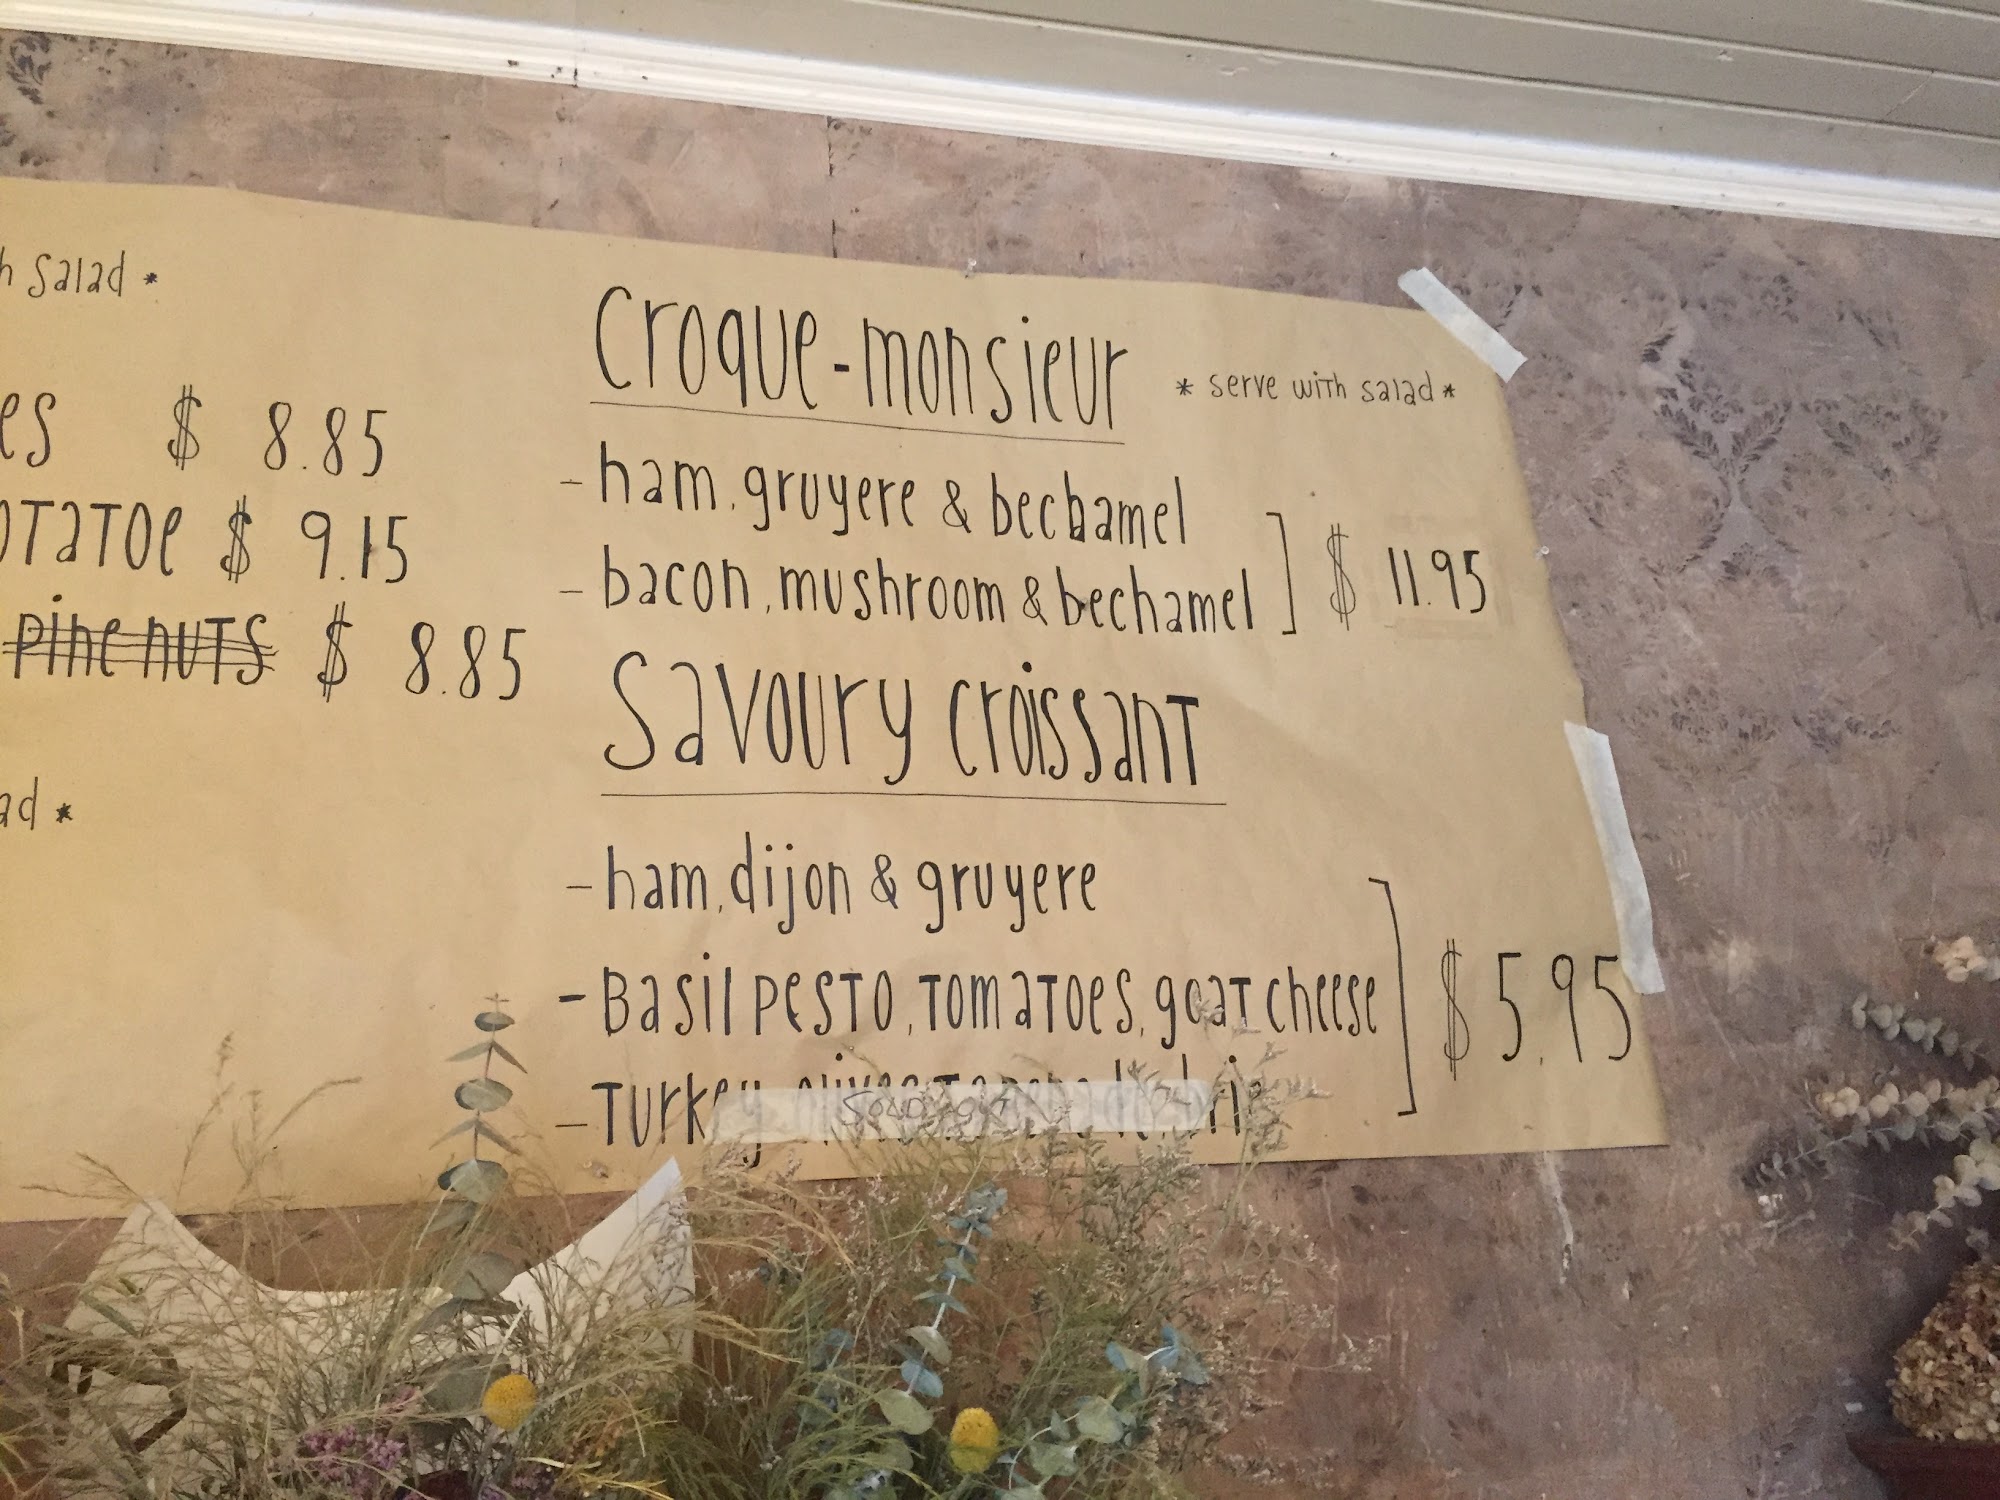 salad *
$ 8.85
$ 9.15
pine nuts $ 8.85
ad *
Croque-monsieur
* serve with salad *
- ham, gruyere & bechamel
- bacon, mushroom & bechamel ] $ 11.95
Savoury croissant
- ham, dijon & gruyere
- Basil pesto, tomatoes, goat cheese ] $ 5.95
- Turkey, olives
SOLD OUT